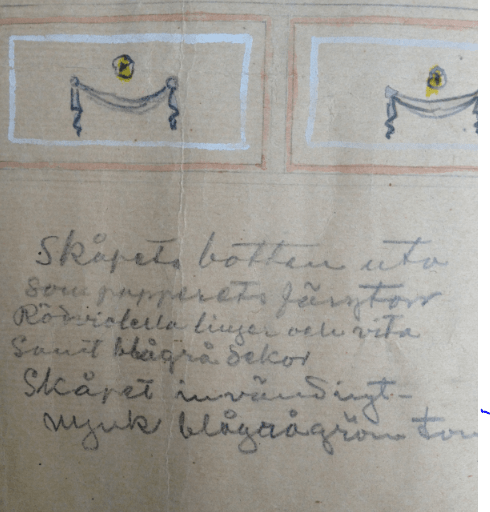 Skåpets botten uta
som papperets färgton
Rödvioletta linjer och vita
Samt blågrå dekor
Skåpet invändigt -
mjuk blågrågrön ton